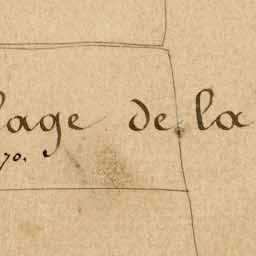 lage de la
70.